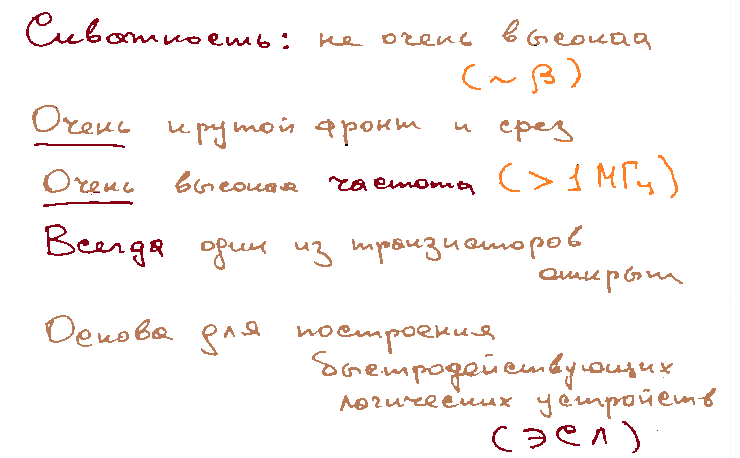 Скважность: не очень высокая
(~ β)
Очень крутой фронт и срез
Очень высокая частота (> 1 МГц)
Всегда один из транзисторов
открыт
Основа для построения
быстродействующих
логических устройств
(ЭСЛ)